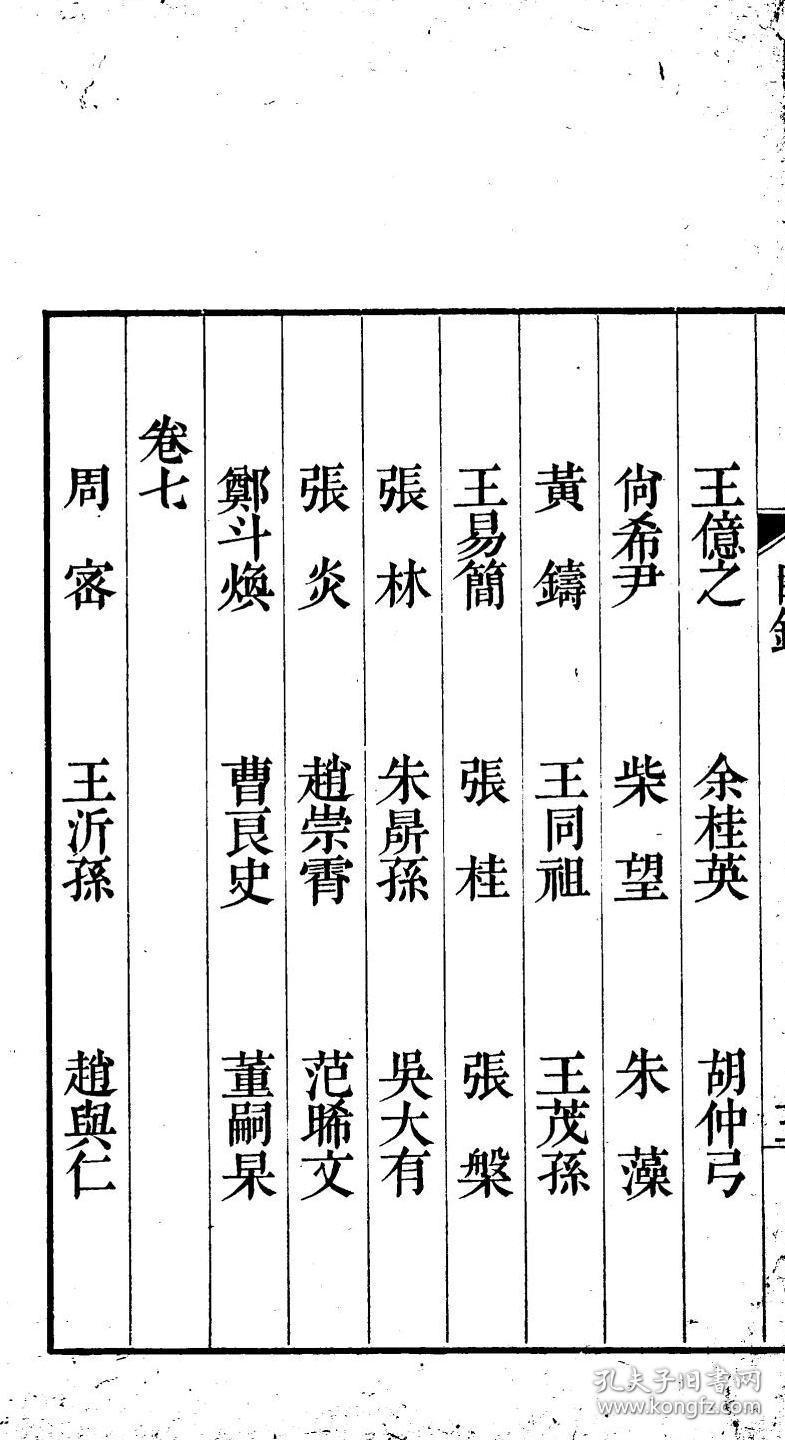 目錄
三
王億之 余桂英 胡仲弓
尙希尹 柴望 朱藻
黃鑄 王同祖 王茂孫
王易簡 張桂 張槃
張林 朱㬎孫 吳大有
張炎 趙崇霄 范晞文
鄭斗煥 曹良史 董嗣杲
卷七
周密 王沂孫 趙與仁
孔夫子旧书网
www.kongfz.com